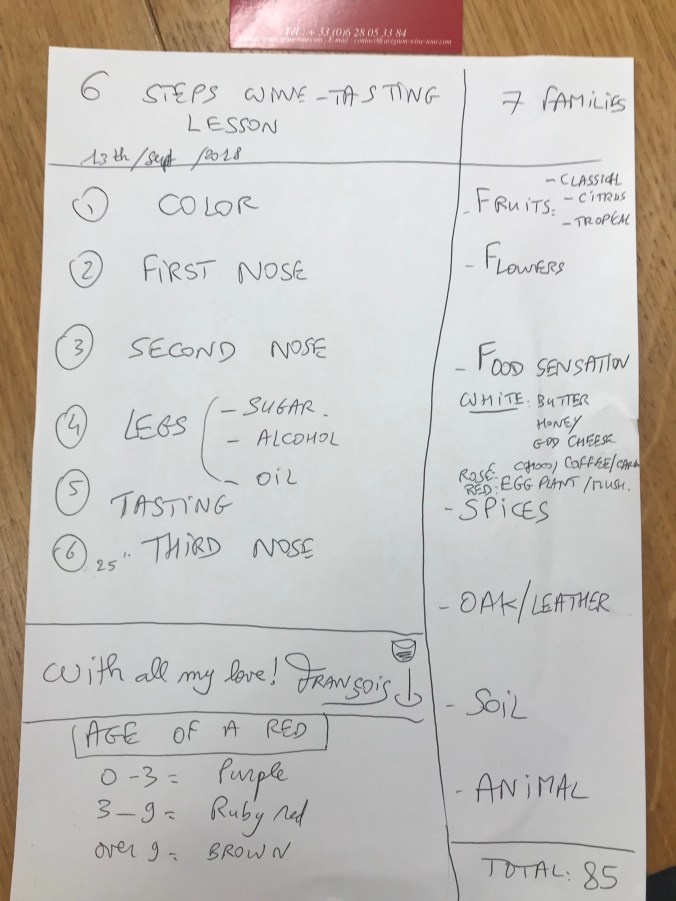 Tél : + 33 (0)6 28 05 33 84
wine-tour.com - E-mail : contact@avignon-wine-tour.com
6 STEPS WINE-TASTING
LESSON
13th/Sept/2018
① COLOR
② FIRST NOSE
③ SECOND NOSE
④ LEGS
- SUGAR.
- ALCOHOL
- OIL
⑤ TASTING
⑥ 25" THIRD NOSE
With all my love! FRANÇOIS
AGE OF A RED
0-3 = Purple
3-9 = Ruby red
over 9 = BROWN
7 FAMILIES
- FRUITS:
- CLASSICAL
- CITRUS
- TROPICAL
- FLOWERS
- FOOD SENSATION
WHITE: BUTTER
HONEY
CHEESE
ROSE: COFFEE/
RED: EGG PLANT/MUSH.
- SPICES
- OAK/LEATHER
- SOIL
- ANIMAL
TOTAL: 85